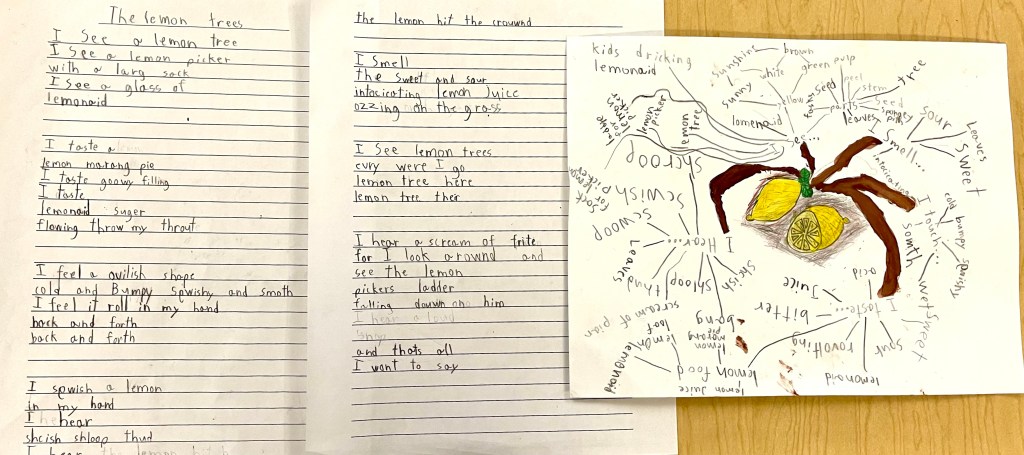 The lemon trees
I see a lemon tree
I see a lemon picker
with a larg sack
I see a glass of
lemonaid
I taste a
lemon marang pie
I taste goowy filling
I taste
lemonaid suger
flowing throw my throut
I feel a ovilish shape
cold and Bumpy sqwishy and smoth
I feel it roll in my hand
back and forth
back and forth
I sqwish a lemon
in my hand
I hear
shcish shloop thud
I hear the lemon
the lemon hit the crouwnd
I smell
the sweet and sour
intoxicating lemon Juice
ozzing on the grass
I see lemon trees
evry were I go
lemon tree here
lemon tree their
I hear a scream of frite
for I look arownd and
see the lemon
pickers ladder
falling douwn on him
I hear a loud
and thats all
I want to say
kids dricking
lemonaid
sunshine
brown
white
green
pulp
sunny
yellow
lomenaid
seed
peel
stem
seed
parts
leaves
tree
lemon picker
lemon tree
I see...
I smell...
sour
Leaves
sweet
intoxicating
I touch...
cold
bumpy
sqwishy
somth
wet
I taste...
acid
Juice
bitter
sweet
sour
rovolting
lemonaid
lemon food
lemon juice
lemon marang pie
lemon loaf
lemonaid
I Hear...
Shcroop
Scwish
Scwoop
Leaves
thud
shloop
Shcish
bang
scream of pian
sack for lemon picker